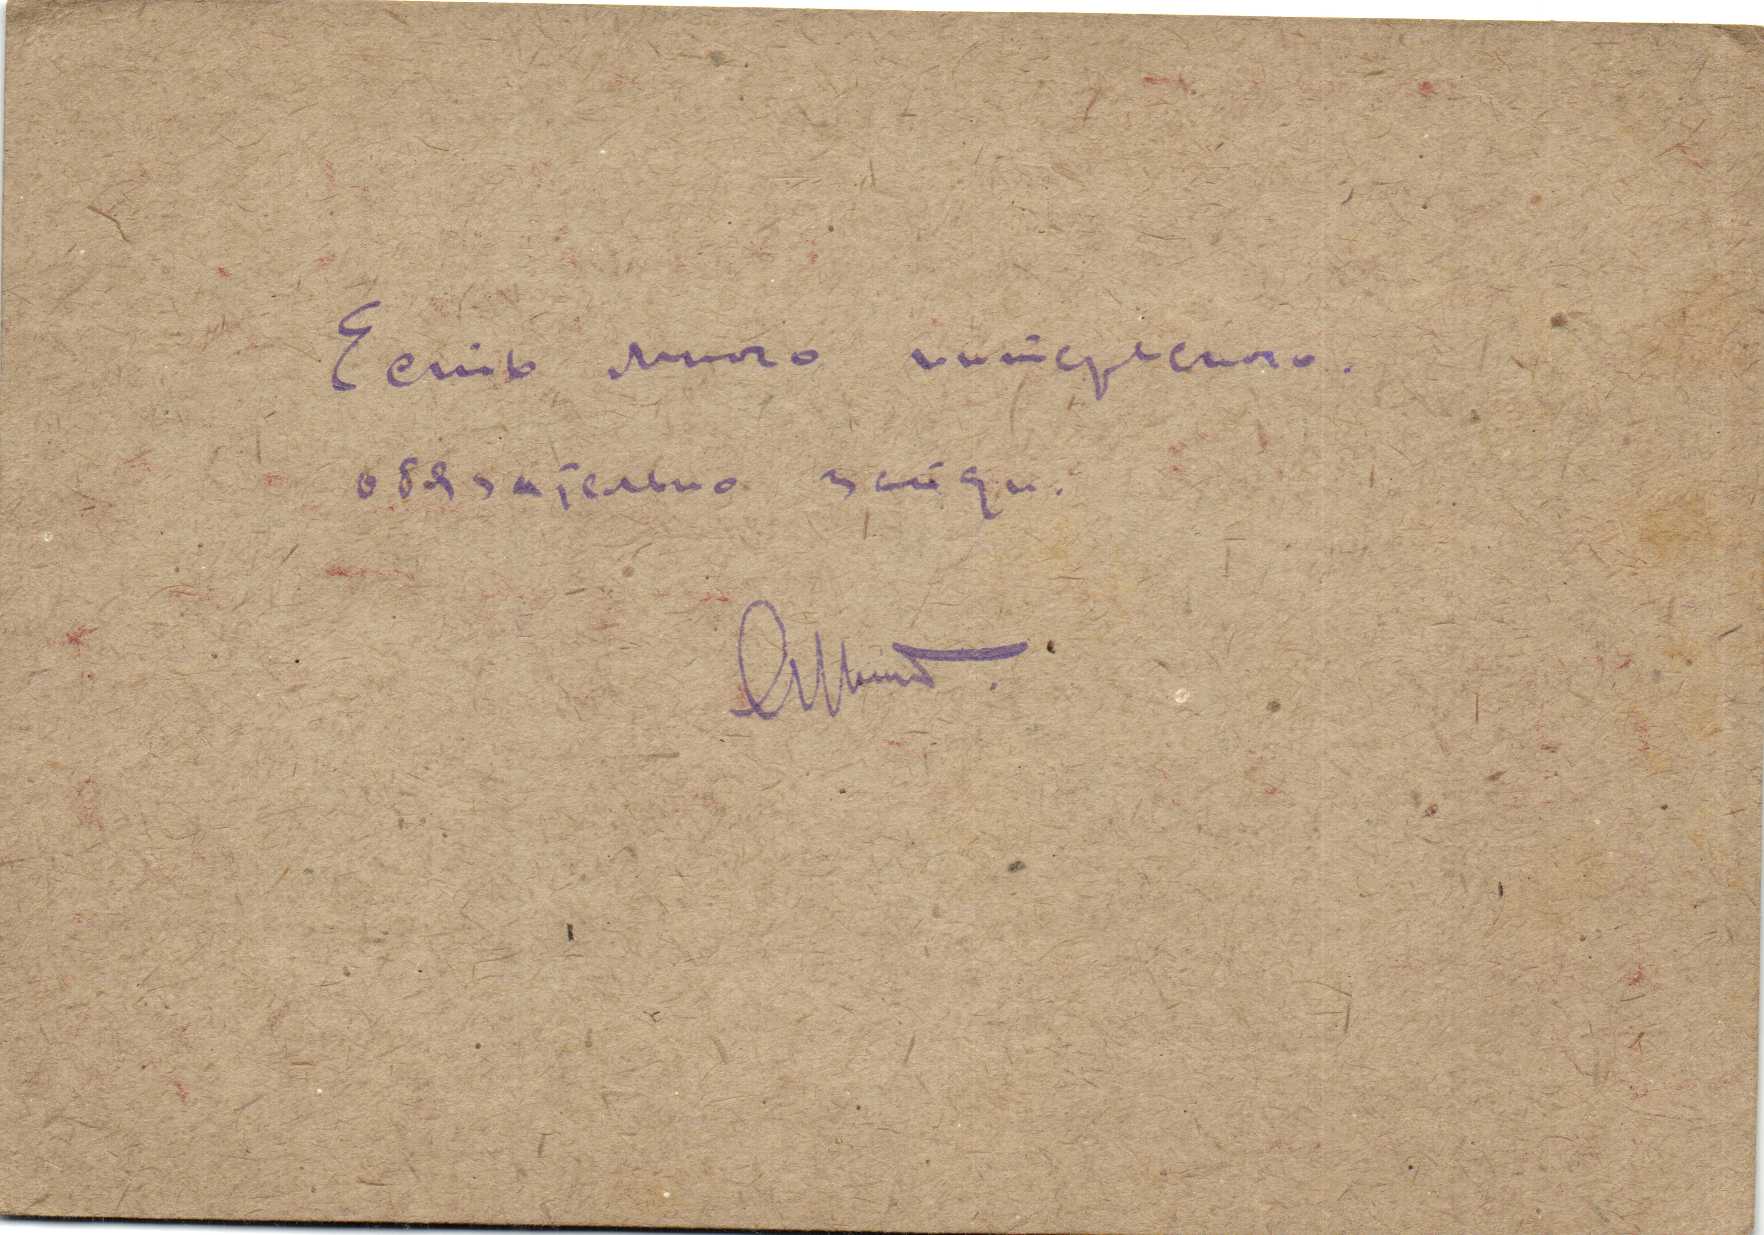 Есть много интересного.
обязательно зайди.